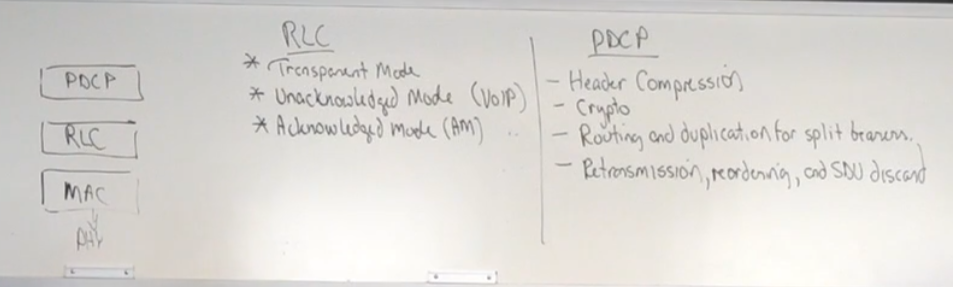 PDCP
RLC
MAC
PHY
RLC
* Transparent Mode
* Unacknowledged Mode (VoIP)
* Acknowledged mode (AM)
PDCP
- Header Compression
- Crypto
- Routing and duplication for split bearers.
- Retransmission, reordering, and SDU discard